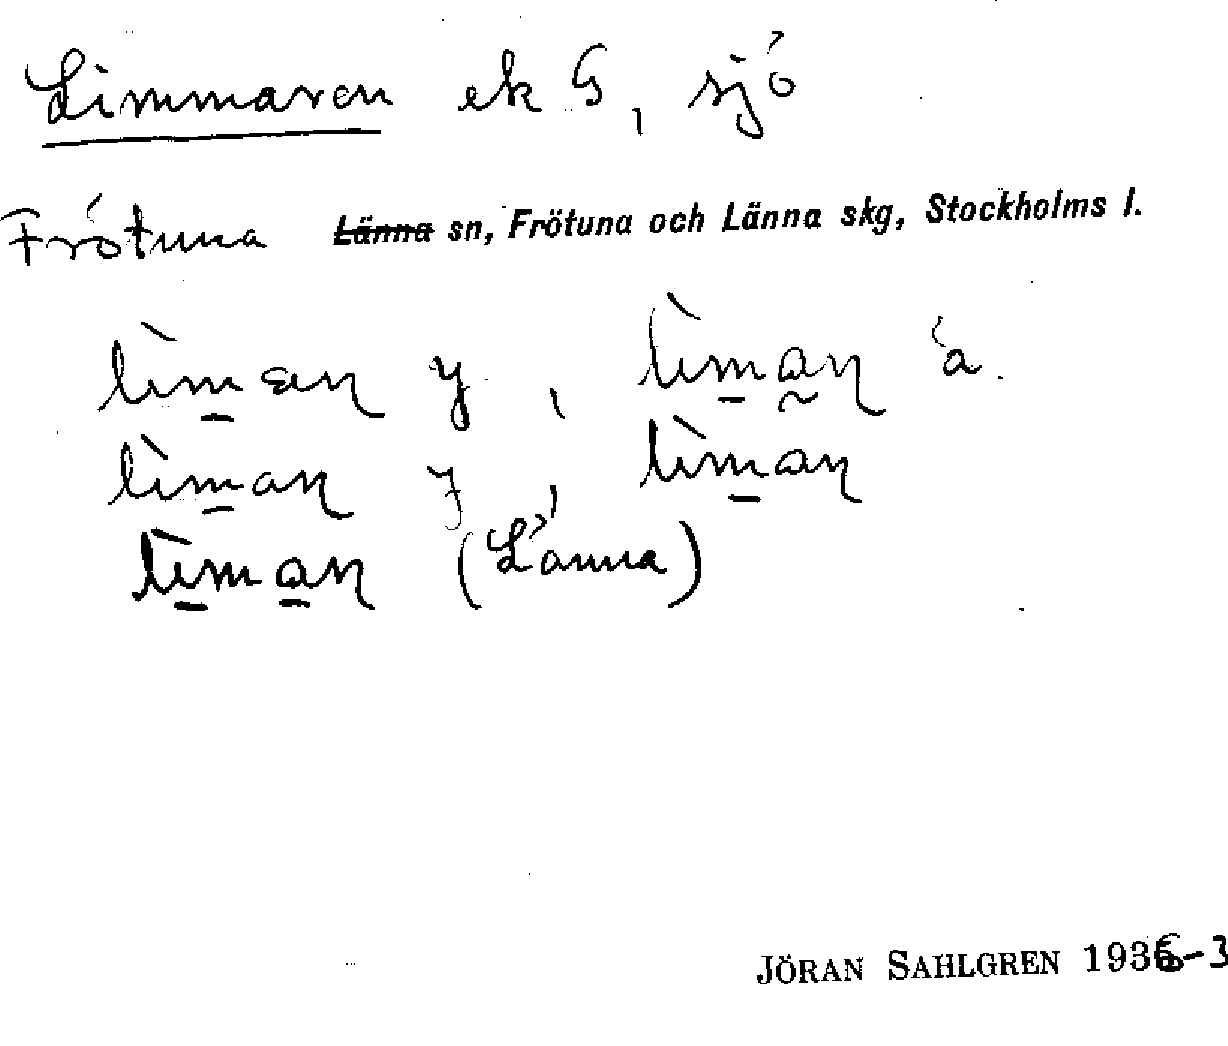 Limmaren ek G, sjö
Frötuna Länna sn, Frötuna och Länna skg, Stockholms l.
lìmæn y, lìman ä.
lìman y, lìman
lìman (Länna)
JÖRAN SAHLGREN 1936-3